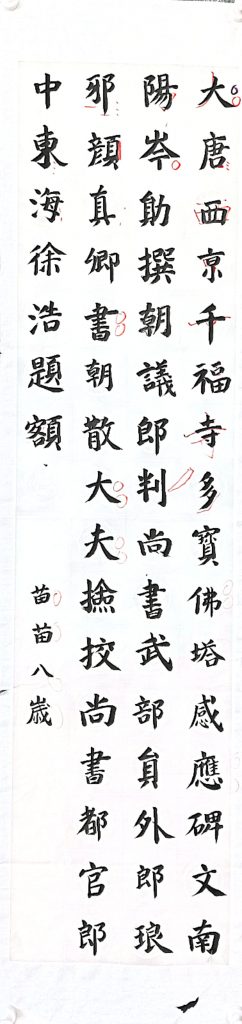 大唐西京千福寺多寶佛塔感應碑文南
陽岑勛撰朝議郎判尚書武部員外郎琅
邪顔真卿書朝散大夫撿挍尚書都官郎
中東海徐浩題額
苗苗八歲